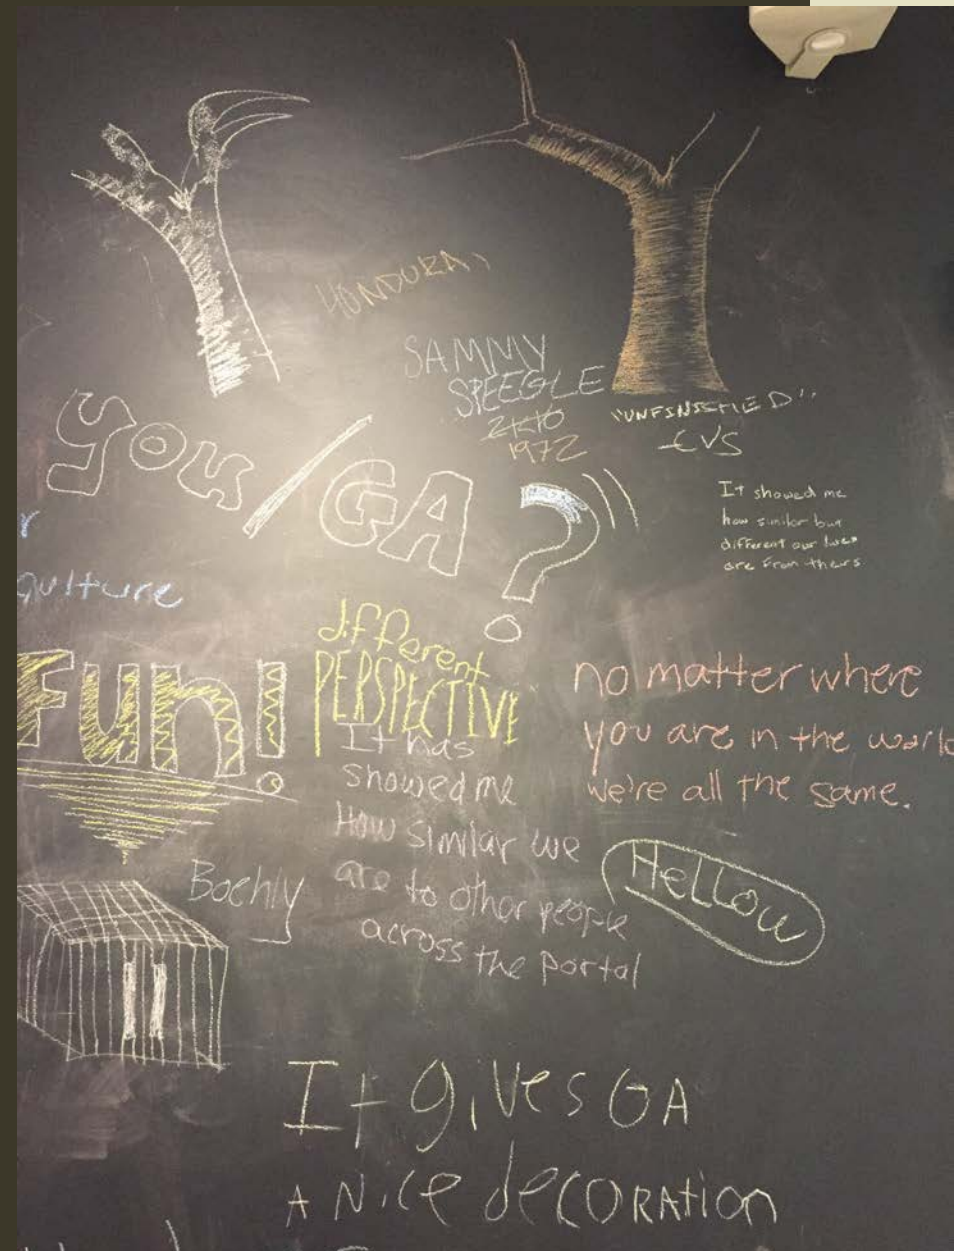 HONDURAS
SAMMY
SPEEGLE
1972
"UNFINISHED"
-CVS
you/GA?
It showed me
how similar but
different our lives
are from theirs
Fun!
different
PERSPECTIVE
It has
showed me
How similar we
are to other people
across the portal
no matter where
you are in the world
we're all the same.
Boehly
Hellow
It gives GA
A Nice decoration